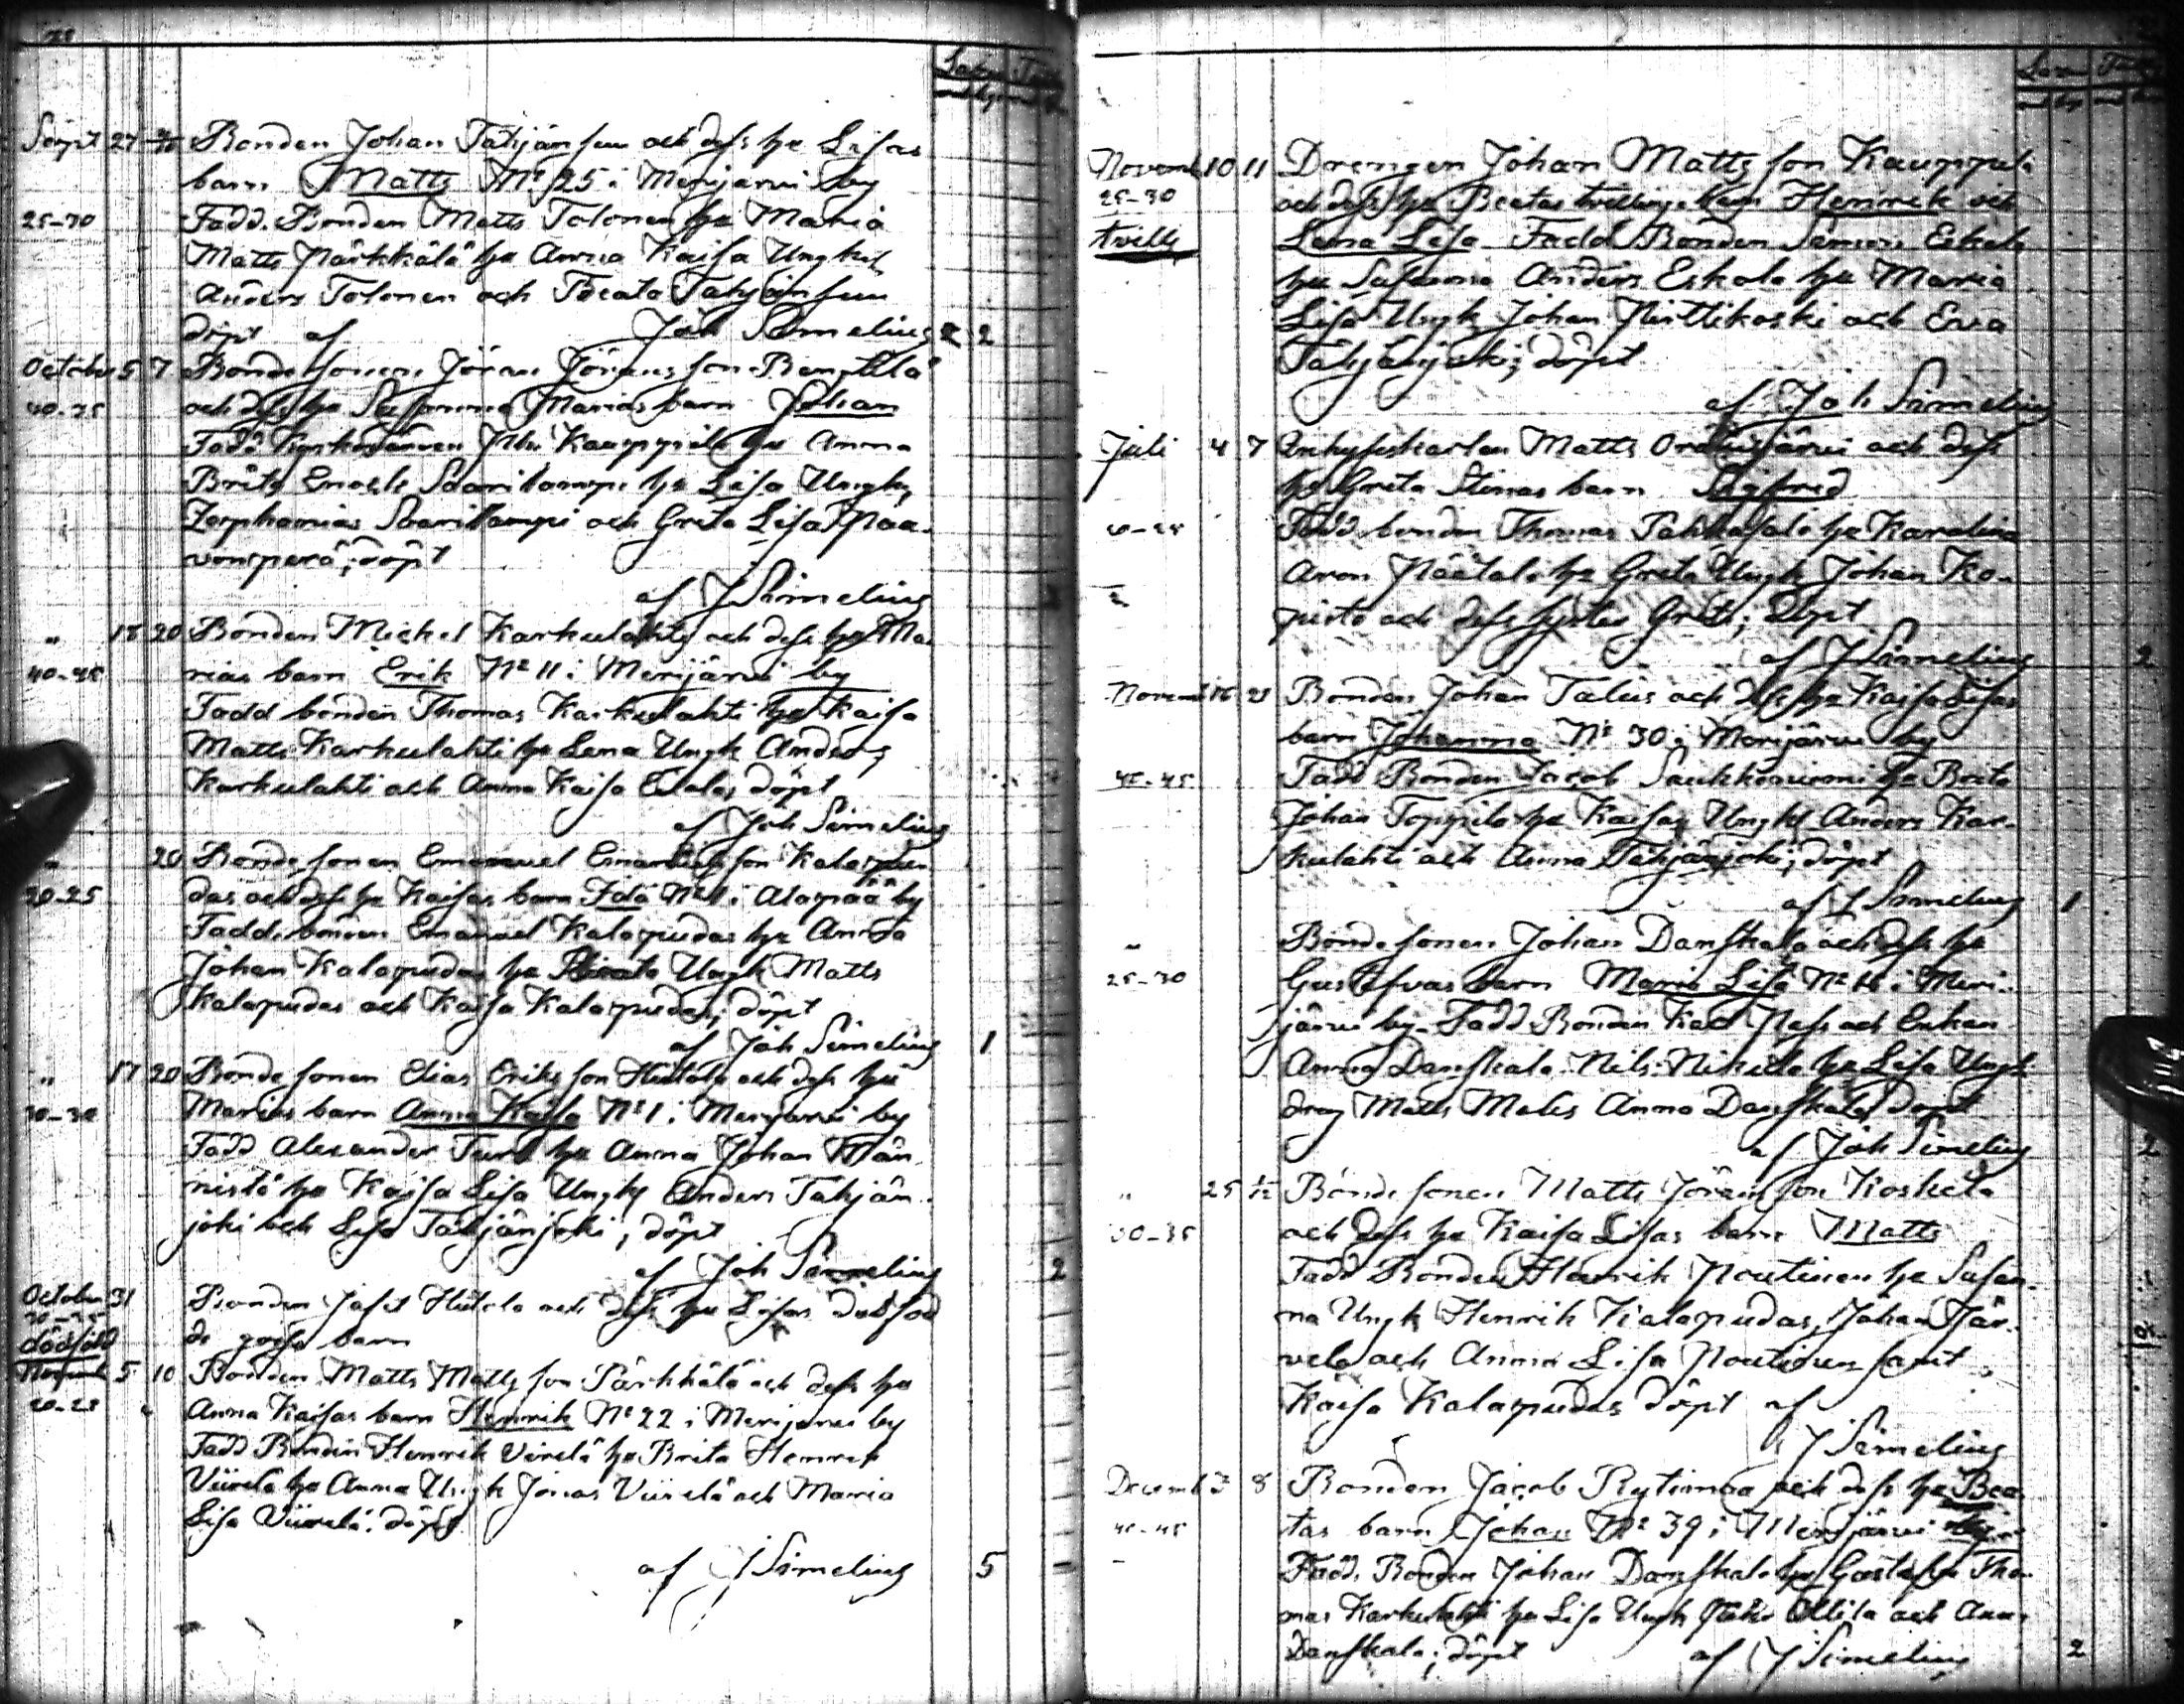 28
Sept 27 Bonden Johan Tähjänsuu och dess hu Lisas
barn Matts No 25 i Merijärvi by
25-30 Fadd. Bonden Matts Tolonen hu Maria
Matts Pärkkälä hu Anna Kaisa Ungk
Anders Tolonen och Beata Tähjänsuu
döpt af Joh Simelius 2
October 5 7 Bondesonen Jöran Jöransson Bengtilä
och dess hu Susanna Marias barn Johan
Fadd Kauppila hu Anna
Brita Enoch Saarikamps hu Lisa Ungk
Zephanias Saarikampi och Greta Lisa Paa-
vonperä; döpt
af J Simelius
" 18 20 Bonden Michel Karkulahti och dess hu Ma-
40-45 rias barn Erik No 11 i Merijärvi by
Fadd bonden Thomas Karkulahti hu Kaisa
Matts Karkulahti hu Lena Ungk Anders
Karkulahti och Anna Kaisa döpt
af Joh Simelius
" 20 Bondesonen Emanuel Emanuelsson Kalapu-
20-25 das och dess hu Kaisas barn Ida No 1 i Alapää by
Fadd. bonden Emanuel Kalapudas hu Anna
Johan Kalapudas hu Beata Ungk Matts
Kalapudas och Kaisa Kalapudas; döpt
af Joh Simelius 1
" 17 20 Bondesonen Elias Eriksson Hietala och dess hu
30-30 Marias barn Anna Kaisa No 1 i Merijärvi by
Fadd Alexander hu Anna Johan Män-
nistö hu Kaisa Lisa Ungk Anders Tähjän-
joki och Lisa Tähjänjoki; döpt
af Joh Simelius 2
October 31 Bonden Hietala och dess hu Lisas dödföd
dödfödd de gosse barn
5 10 Bonden Matts Mattsson Pärkkälä och dess hu
Anna Kaisas barn Henrik No 22 i Merijärvi by
Fadd Bonden Henrik Viirelä hu Brita Henrik
Viirelä hu Anna Ungk Jonas Viirelä och Maria
Lisa Viirelä. döpt
af J Simelius 5
Novemb 10 11 Drengen Johan Mattsson Kauppila
25-30 och dess hu Beatas tvillinge barn Henrik och
tvill. Lena Lisa Fadd Bonden Simon Eskola
hu Susanna Anders Eskola hu Maria
Lisa Ungk Johan Pirttikoski och Eva
Tähjänjoki; döpt
af Joh Simelius
Juli 4 7 Inhyseskarlen Matts och dess
hu Greta Stinas barn Sigfrid
Fadd bonden Thomas Pahkasalo hu Karolina
Aron Päätalo hu Greta Ungk Johan Ko-
pisto och dess syster Greta; döpt
af J Simelius 2
Novemb Bonden Johan Talus och dess hu Kajsa Lisas
barn Johanna No 30 i Merijärvi by
Fadd Bonden Jacob Saukkovuomi hu Beata
Johan Toppila hu Kaisa Ungk Anders Kar-
kulahti och Anna Tähjänjoki; döpt
af J Simelius 1
" Bondesonen Johan Danskala och dess hu
25-30 Gustafvas barn Maria Lisa No 16 i Meri-
järvi by. Fadd Bonden och Enkan
Anna Danskala Nils Nikula hu Lisa Ungk
dreng Matts Anna Danskala döpt
af Joh Simelius 2
" 25 Bondesonen Matts Jöransson Koskela
30-35 och dess hu Kaisa Lisas barn Matts
Fadd Bonden Henrik Poutinen hu Susan-
na Ungk Henrik Kalapudas, Johan Jär-
velä och Anna Lisa Poutinen samt
Kaisa Kalapudas döpt af
J Simelius
Decemb 3 8 Bonden Jacob Rytimaa och dess hu Bea-
40-45 tas barn Johan No 39 i Merijärvi by
Fadd. Bonden Johan Danskala hu Tho-
mas Karkulahti hu Lisa Ungk Ollila och Anna
Danskala; döpt af J Simelius 2